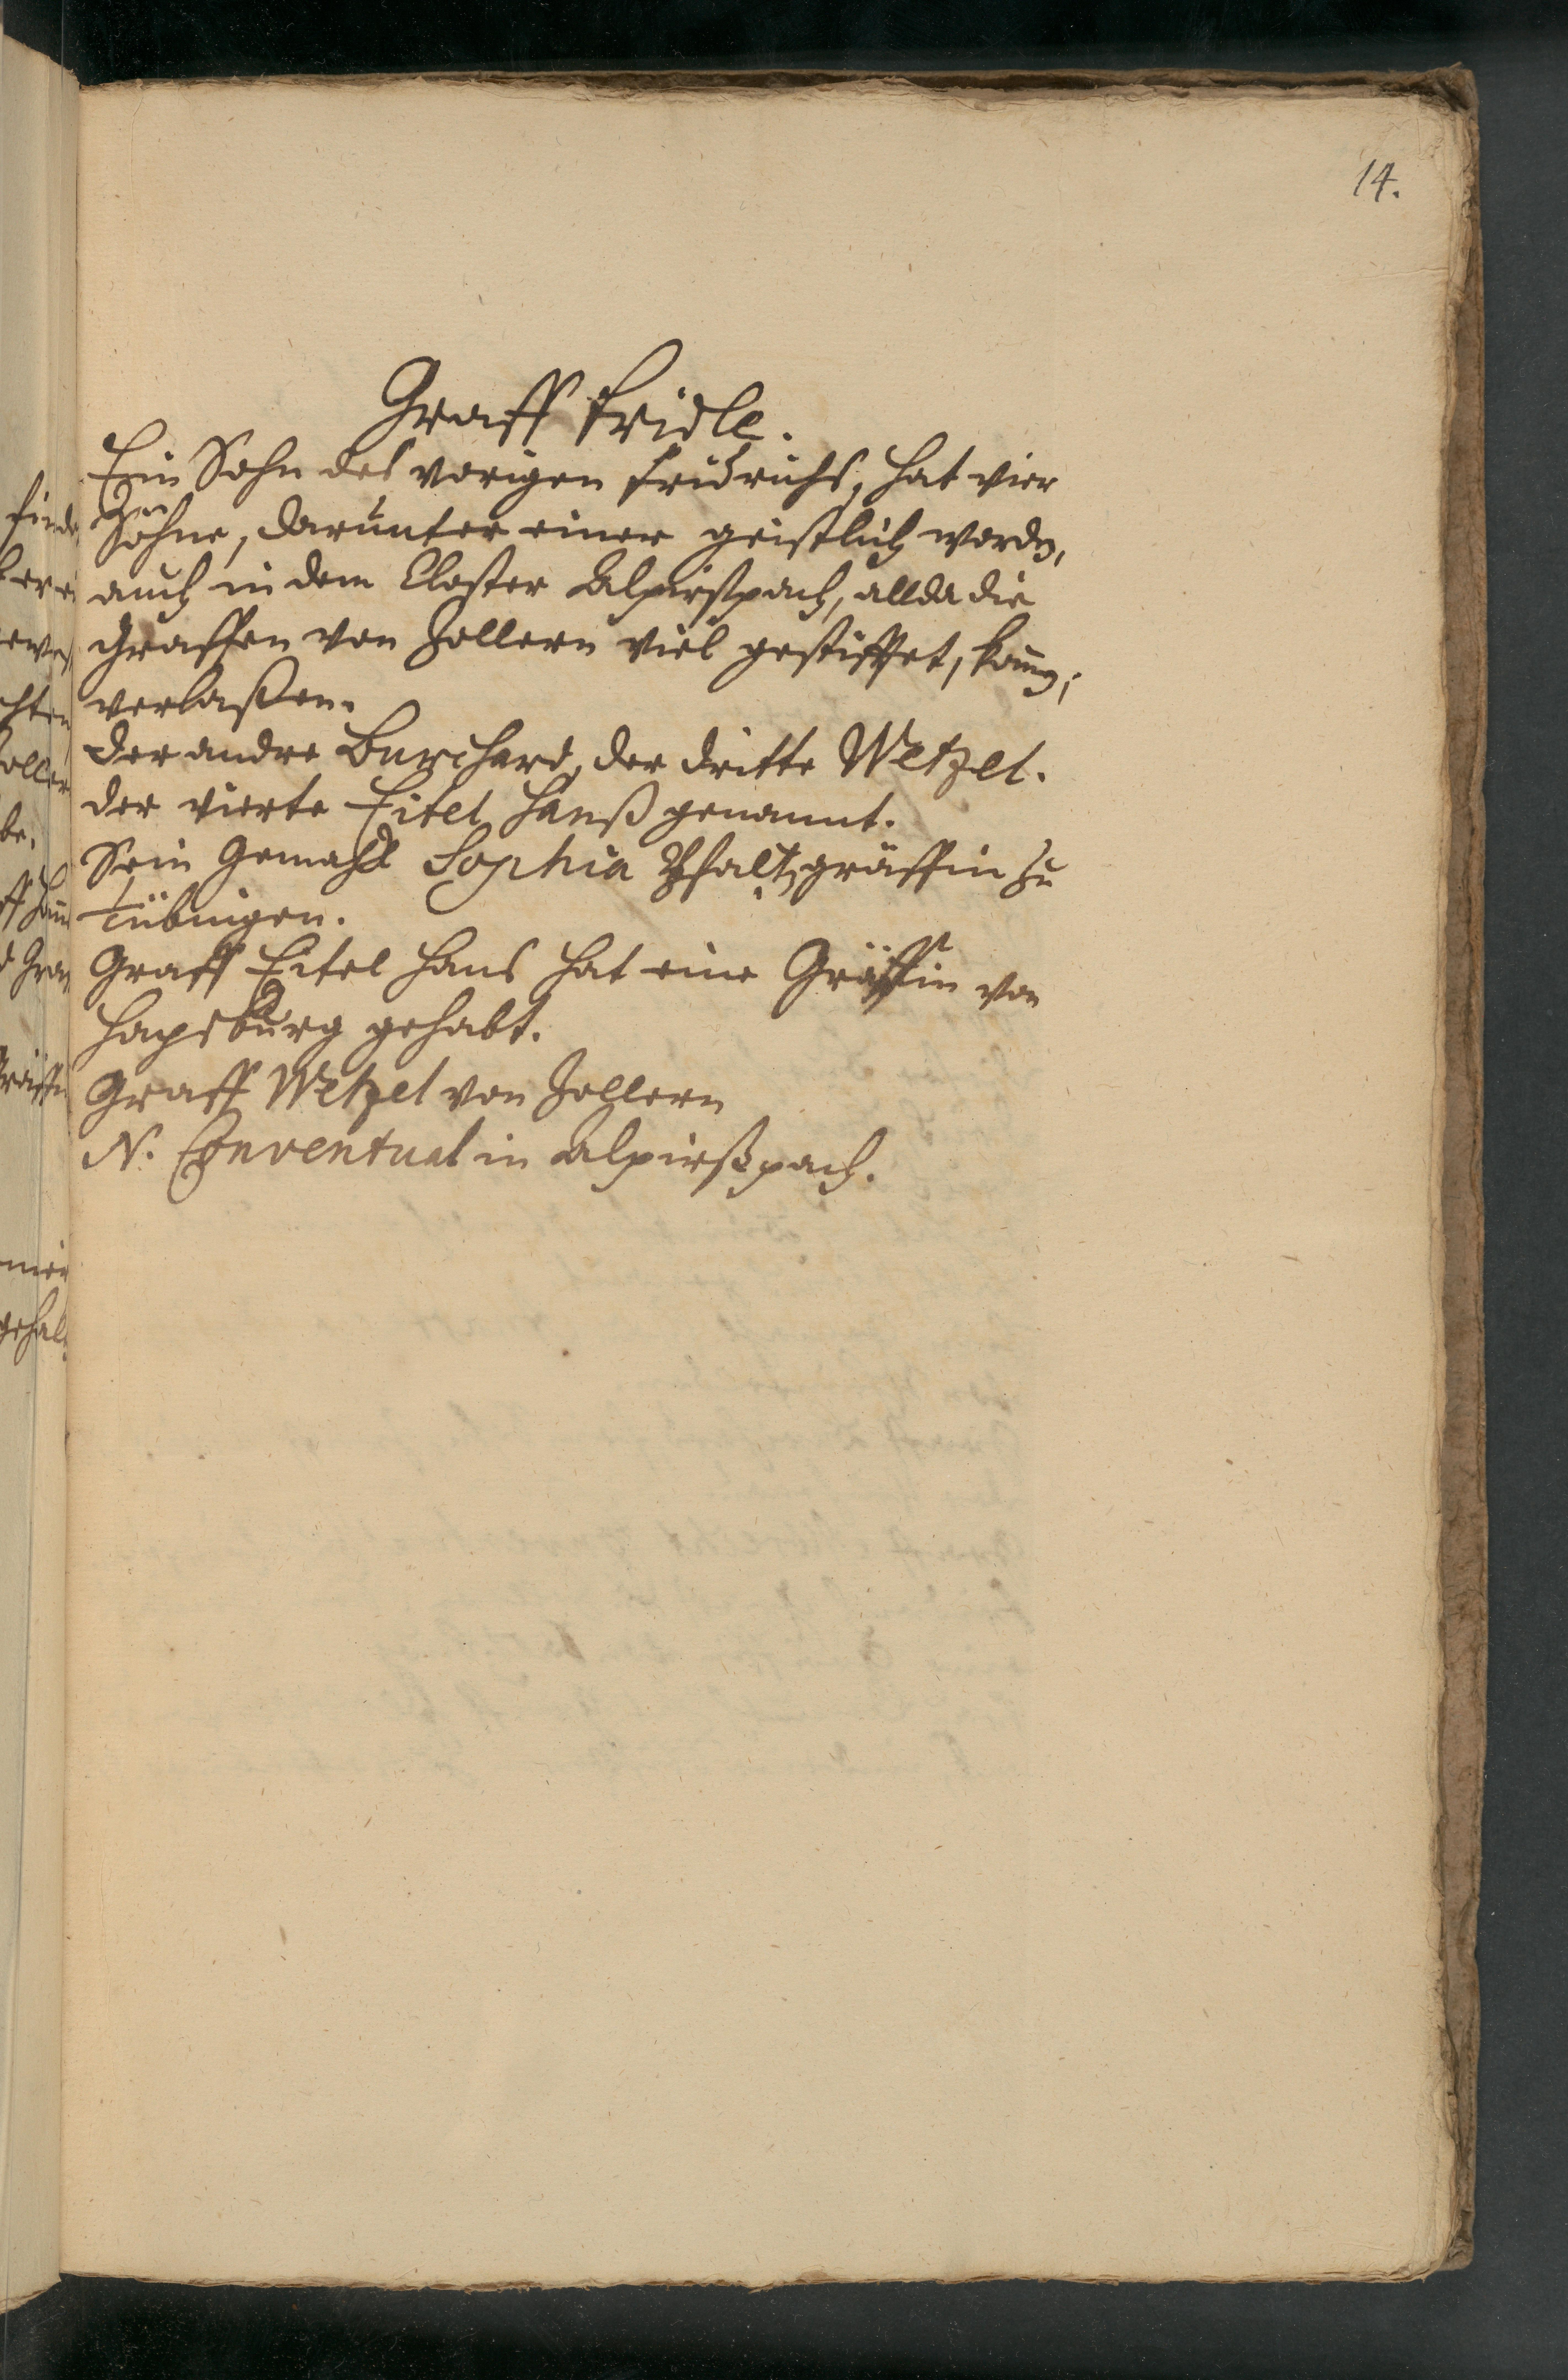 14.
Graff Fridle.
Ein Sohn des vorigen Fridrichs, hat vier
Söhne, darunter einer geistlich worden,
auch in dem Closter Alpirßpach, allda die
Graffen von Zollern viel gestifftet,
verlaßen.
Der andre Burchard, der dritte Wetzel.
der vierte Eitel Hanß genannt.
Sein Gemahl Sophia Pfaltzgräffin zu
Tübingen.
Graff Eitel Hans hat eine Gräffin von
Hapsburg gehabt.
Graff Wetzel von Zollern
N. Conventual in Alpirßpach.